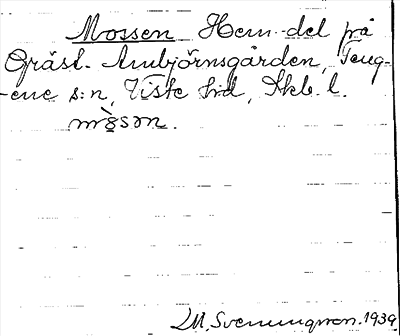 Mossen Hem.-del på
Gräst. Ambjörnsgården, Teng-
-ene s:n, Viste hd, Skb. l.
Sveningsson. 1939